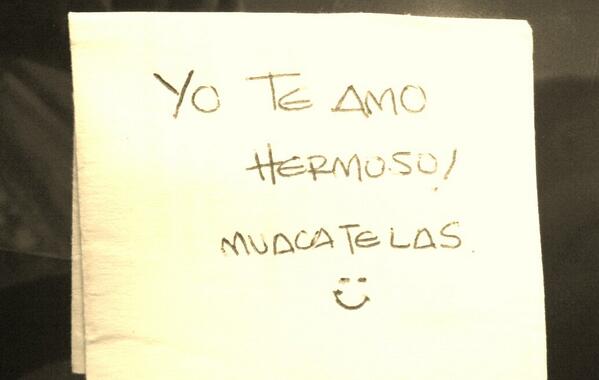 YO TE AMO
HERMOSO!
MUACATELAS